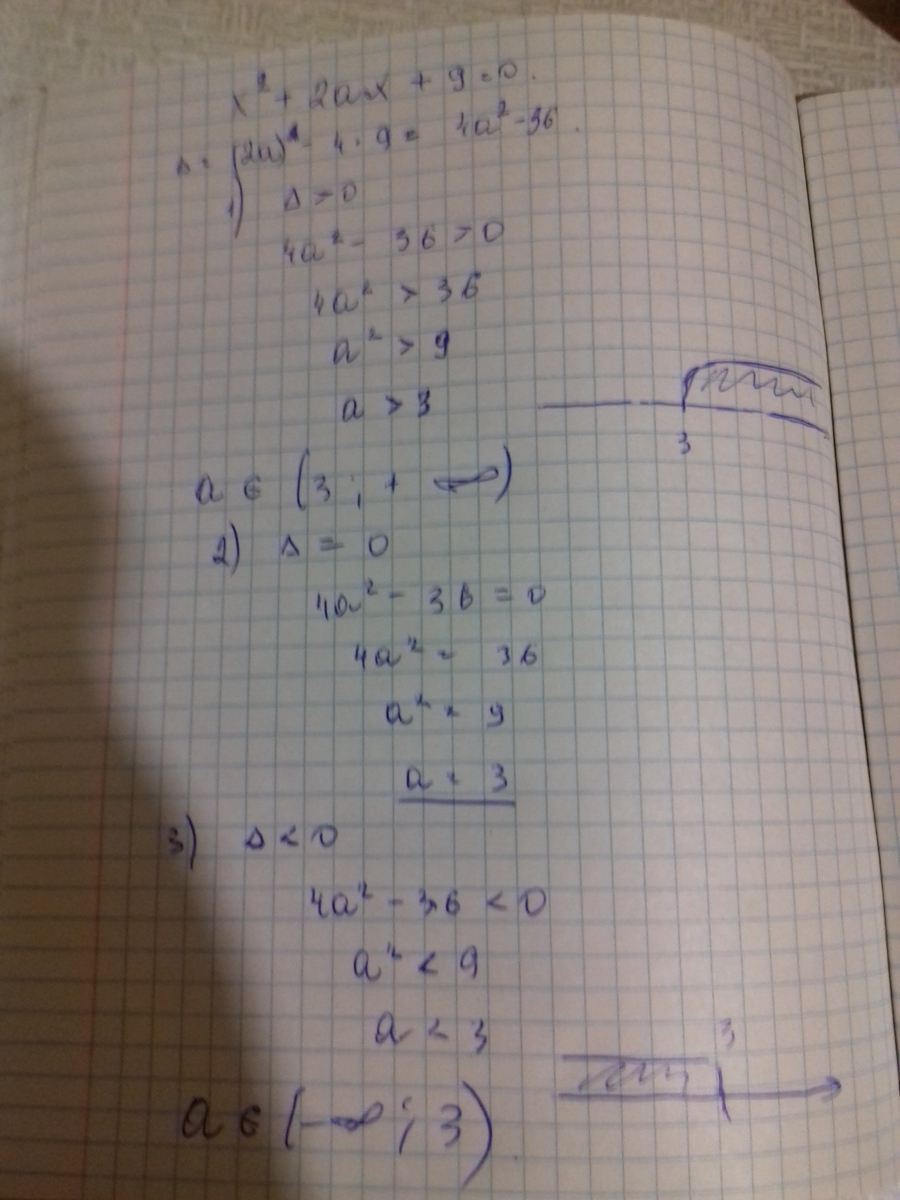 x² + 2ax + 9 = 0.
Δ = (2a)² - 4 · 9 = 4a² - 36.
1) Δ > 0
4a² - 36 > 0
4a² > 36
a² > 9
a > 3
3
a ∈ (3 ; + ∞)
2) Δ = 0
4a² - 36 = 0
4a² = 36
a² = 9
a = 3
3) Δ < 0
4a² - 36 < 0
a² < 9
a < 3
3
a ∈ (-∞ ; 3).